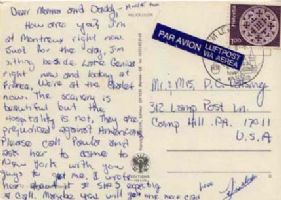 Dear Momma and Daddy,
How are you? I'm
at Montreux right now
just for the day. I'm
sitting beside Lake Geneva
right now and looking at
France. We're at the Chalet
now. The scenery is
beautiful but the
hospitality is not. They are
prejudiced against Americans
Please call Paula and
ask her to come to
New York with you
guys to get me. I wrote
her about it & she's expecting
a call. Maybe you will get
love
PAR AVION
LUFTPOST
VIA AEREA
HELVETIA
Mr. & Mrs. D. C.
312 Lamp Post Ln.
Camp Hill, PA. 17011
U.S.A